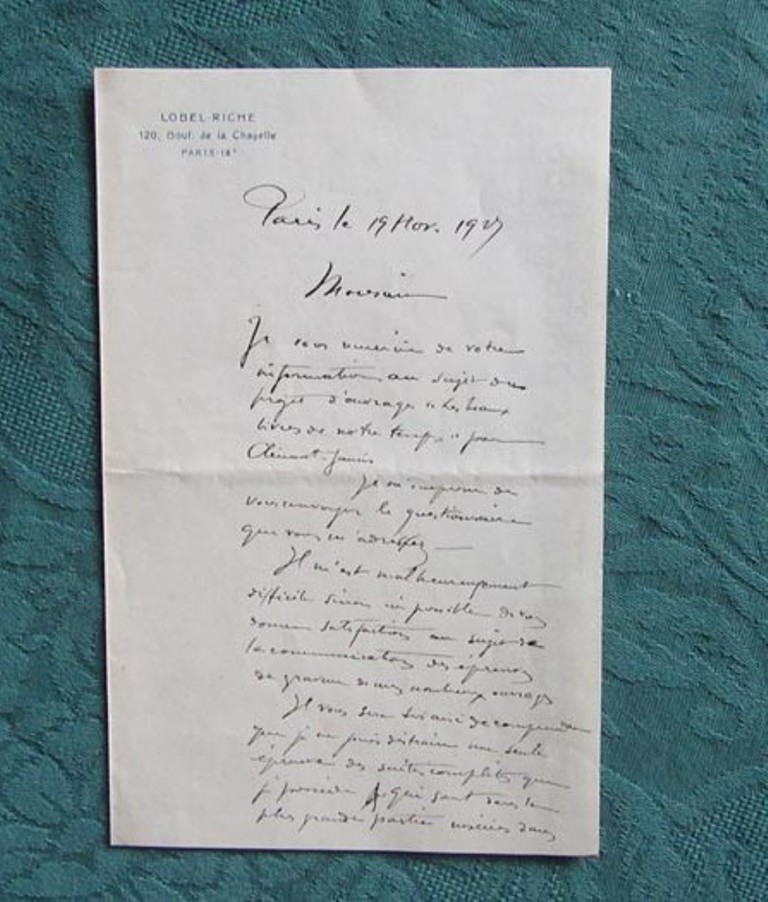 LOBEL-RICHE
120, Boul. de la Chapelle
PARIS-18e
Paris le 19 Nov. 1927
Monsieur
Je vous remercie de votre
information au sujet du
projet d'ouvrage "Les beaux
livres de notre temps" par
Clément-Janin
Je m'empresse de
vous envoyer le questionnaire
que vous m'adressez
Il m'est malheureusement
difficile sinon impossible de vous
donner satisfaction au sujet de
la communication des épreuves
de gravure de mes nombreux ouvrages
Il vous sera aisé de comprendre
que je ne puis distraire une seule
épreuve des suites complètes que
je possède qui sont dans la
plus grande partie insérées dans